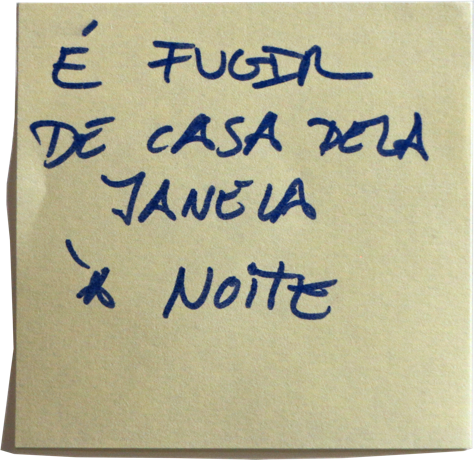 É FUGIR
DE CASA PELA
JANELA
À NOITE